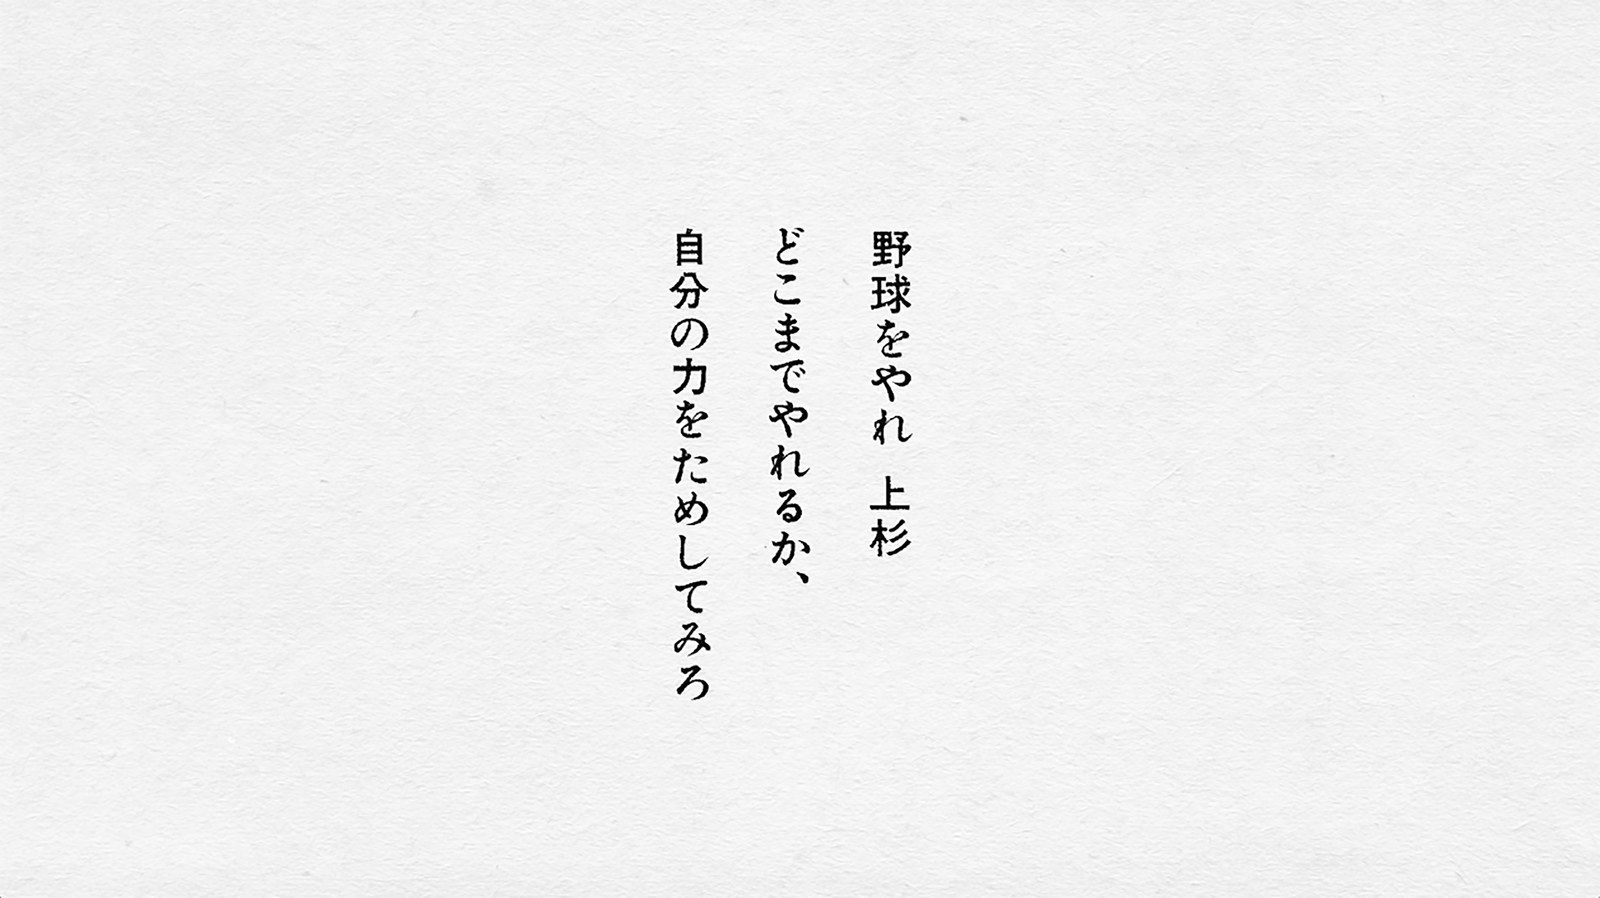 野球をやれ　上杉
どこまでやれるか、
自分の力をためしてみろ